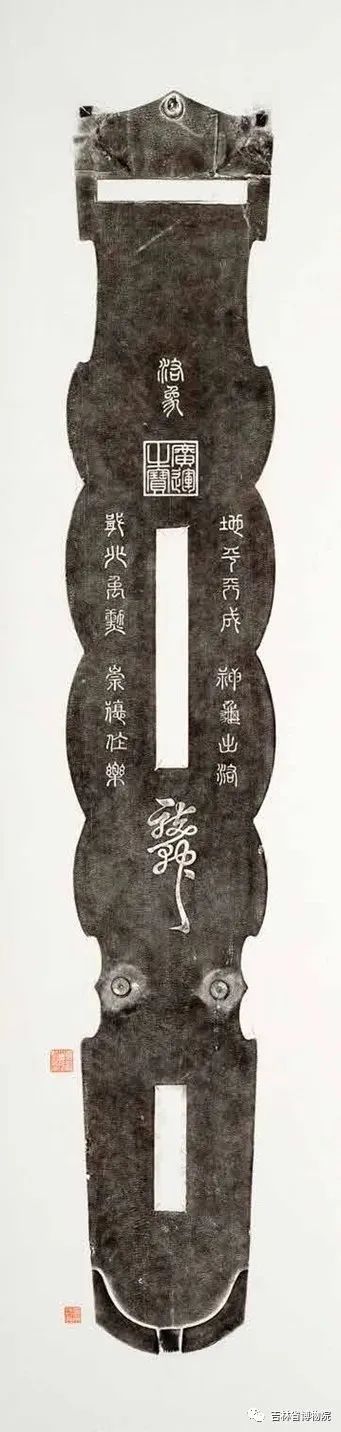 洛象
廣運
之寶
地平天成 神龜出洛
兆禹勳 崇德作樂
吉林省博物院